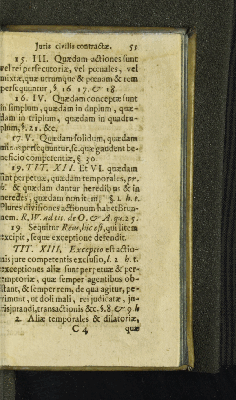 Juris civilis contractæ. 51
15. III. Quædam actiones sunt
vel rei persecutoriæ, vel pœnales, vel
mixtæ, quæ utrumque & pœnam & rem
persequuntur, § 16 17. & 18
16. IV. Quædam conceptæ sunt
in simplum, quædam in duplum, quæ-
dam in triplum, quædam in quadru-
plum, §. 21. &c.
17. V. Quædam solidum, quædam
persequuntur, sc. quæ gaudent be-
neficio competentiæ, § 30
19. TIT. XII. Et VI. quædam
sunt perpetuæ, quædam temporales, pr.
& quædam dantur heredibus & in
heredes, quædam non it. in § 1. h. t.
Plures divisiones actionum habet Bru-
nem. R. W. ad tit. de O. & A. qu. 25.
19. Sequitur Reus, hic est, qui litem
excipit, seque exceptione defendit.
TIT. XIII. Exceptio est actio-
nis jure competentis exclusio, l. 2 h. t.
exceptiones aliæ sunt perpetuæ & per-
emptoriæ, quæ semper agentibus ob-
stant, & semper rem, de qua agitur, pe-
rimunt, ut doli mali, rei judicatæ, ju-
risjurandi, transactionis &c. § 8. & 9 h
2 Aliæ temporales & dilatoriæ,
C 4 quæ